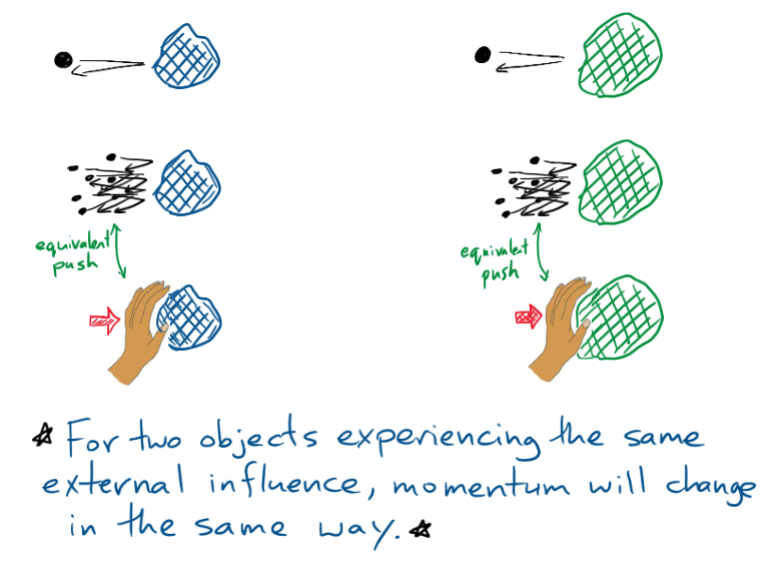 equivalent
push
equivalent
push
☆ For two objects experiencing the same
external influence, momentum will change
in the same way. ☆